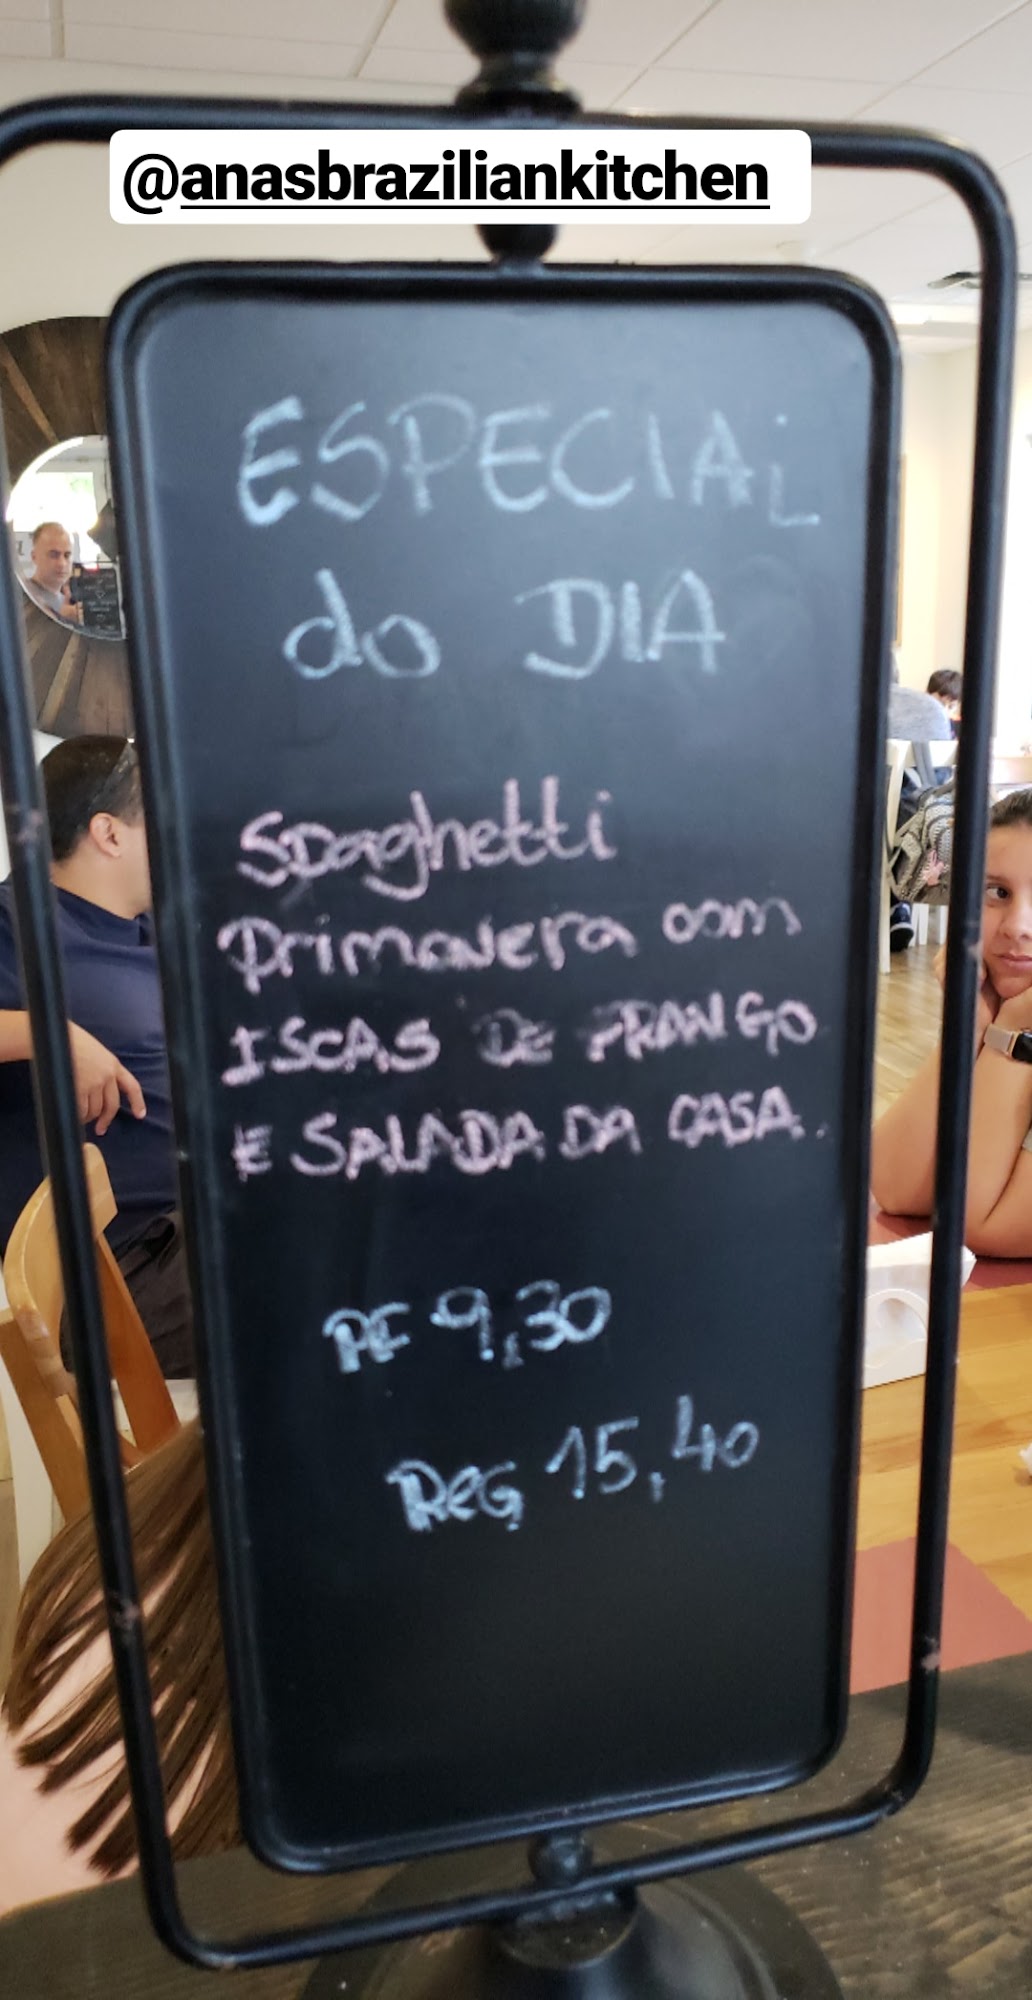 @anasbraziliankitchen
ESPECIAL
do DIA
Spaghetti
Primavera com
ISCAS DE FRANGO
E SALADA DA CASA.
PF 9,30
REG 15,40